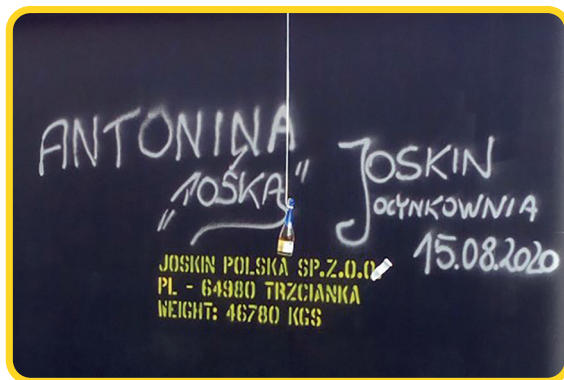 ANTONINA
"TOŚKA"
JOSKIN
OCYNKOWNIA
15.08.2020
JOSKIN POLSKA SP.Z.O.O.
PL - 64980 TRZCIANKA
WEIGHT: 46780 KGS